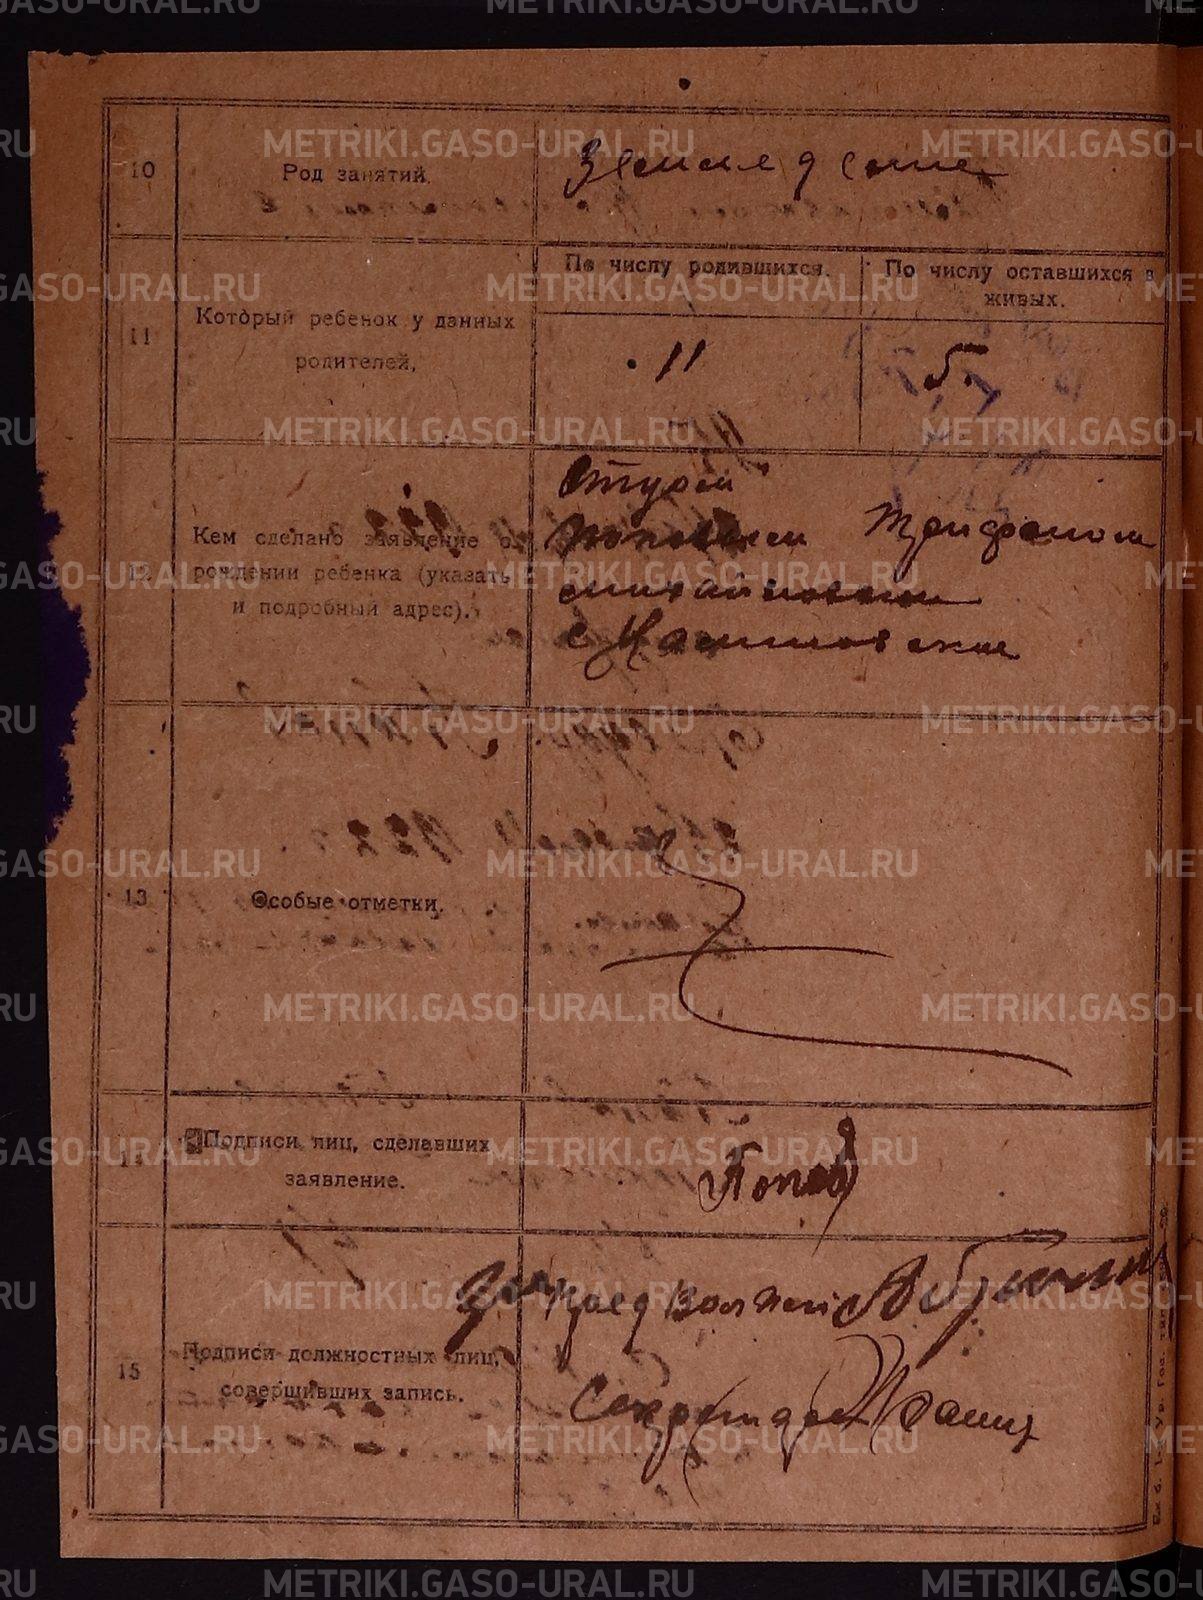 10
Род занятий.
Земледелие
11
Который ребенок у данных
родителей,
По числу родившихся.
По числу оставшихся в
живых.
11
5.
12
Кем сделано заявление о
рождении ребенка (указать
и подробный адрес).
Отцом
Поповым Трифоном
Михайловичем
с.
13
Особые отметки.
14
Подписи лиц, сделавших
заявление.
Попов
15
Подписи должностных лиц,
совершивших запись.
Пред
Секретарь
METRIKI.GASO-URAL.RU